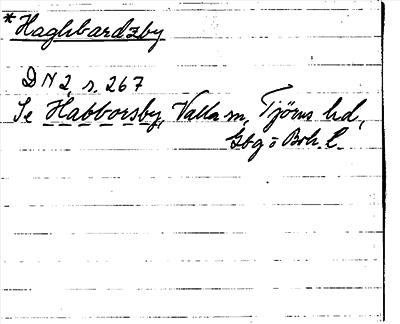 *Haghbardzby
DN 2, s. 267
Se Habborsby, Valla sn, Tjörns hd,
Gbg o Boh. l.